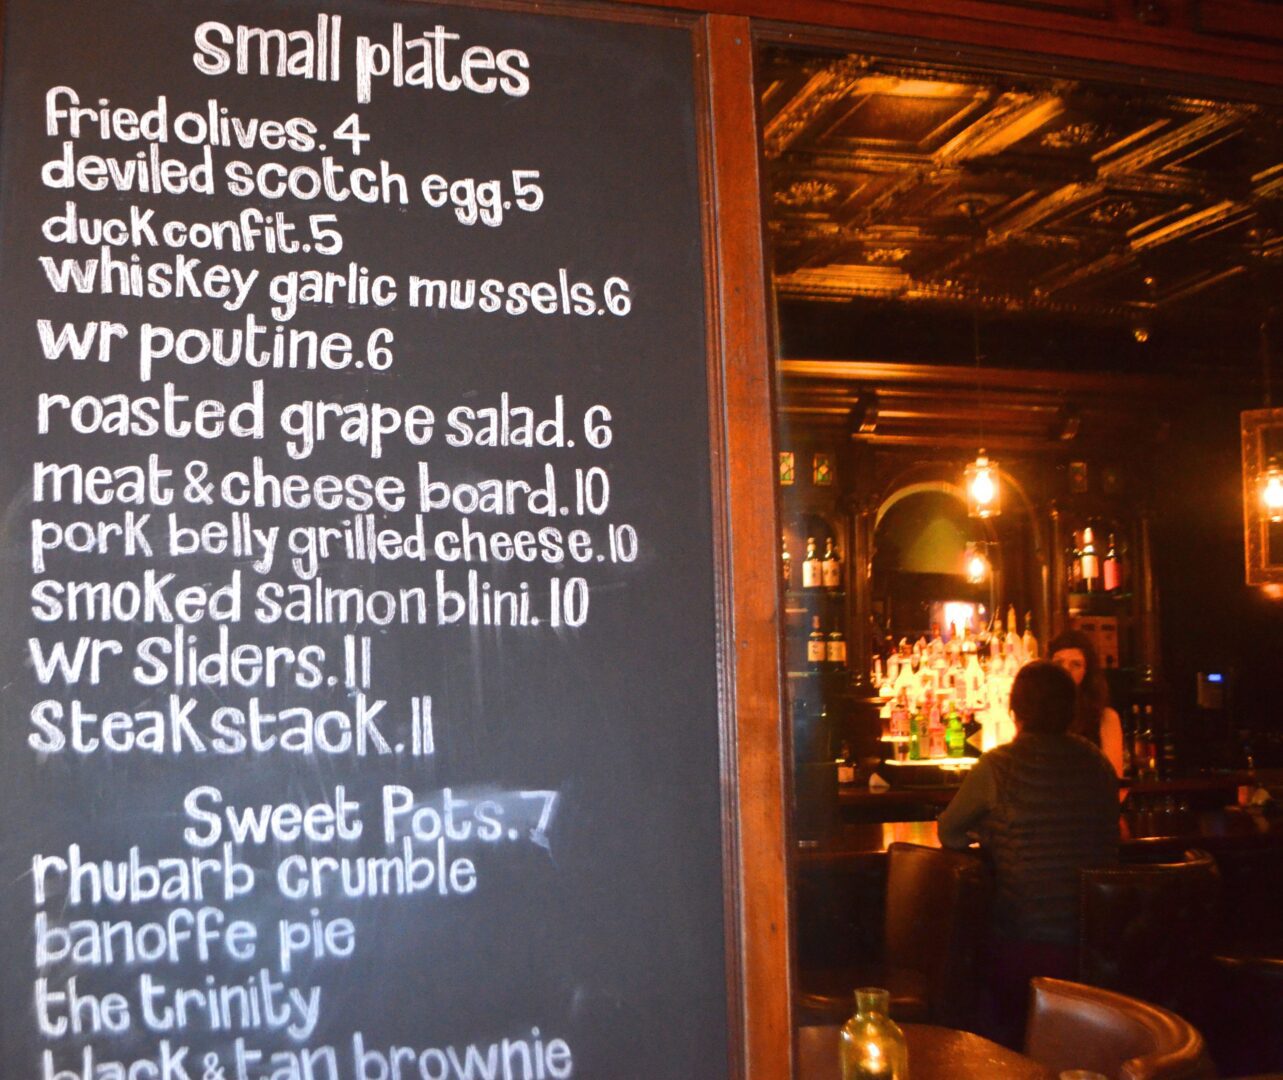 small plates
fried olives. 4
deviled scotch egg. 5
duck confit. 5
whiskey garlic mussels. 6
wr poutine. 6
roasted grape salad. 6
meat & cheese board. 10
pork belly grilled cheese. 10
smoked salmon blini. 10
wr sliders. 11
steak stack. 11
Sweet Pots. 7
rhubarb crumble
banoffe pie
the trinity
black & tan brownie